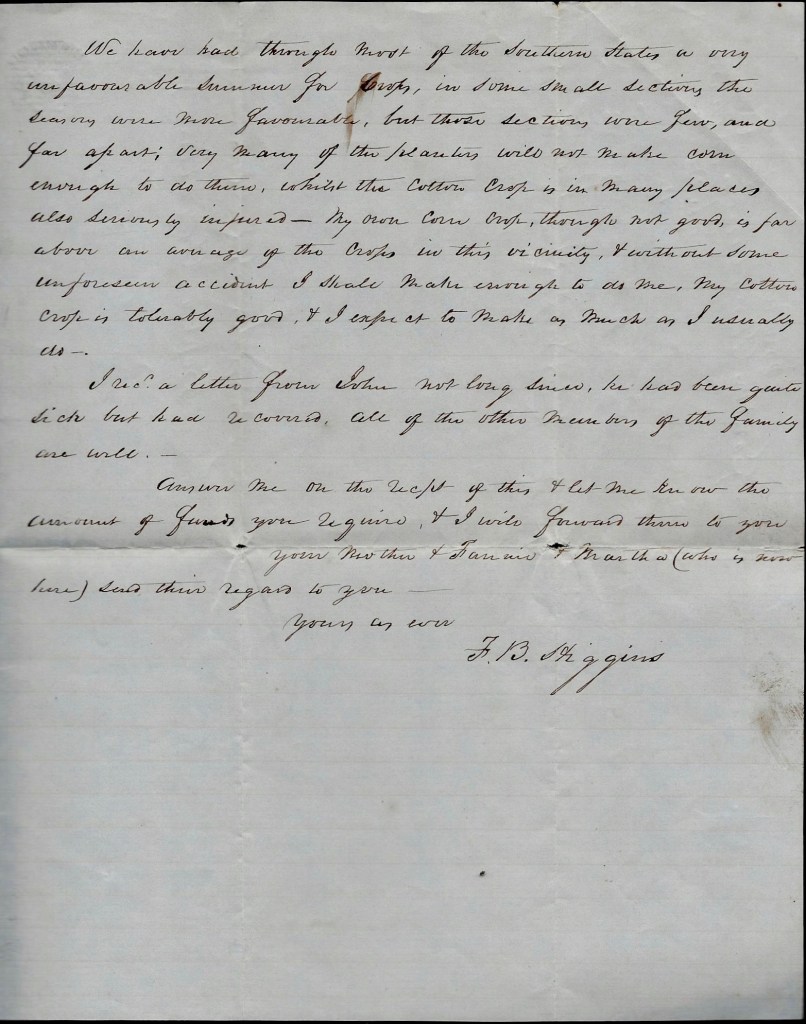 We have had through most of the Southern States a very
unfavourable summer for Crops, in some small sections the
seasons were more favourable, but those sections were few, and
far apart; Very many of the planters will not make corn
enough to do them, whilst the Cotton Crop is in many places
also seriously injured — My own Corn Crop, though not good, is far
above an average of the Crops in this vicinity, & without some
unforeseen accident I shall make enough to do me, My Cotton
Crop is tolerably good, & I expect to make as much as I usually
do —.
I recd. a letter from John not long since, he had been quite
sick but had recovered, all of the other members of the family
are well. —
Answer me on the recpt of this & let me know the
amount of funds you require, & I will forward them to you
your Mother & Fannie & Martha (who is now
here) send their regard to you —
Yours as ever
F. B. Higgins